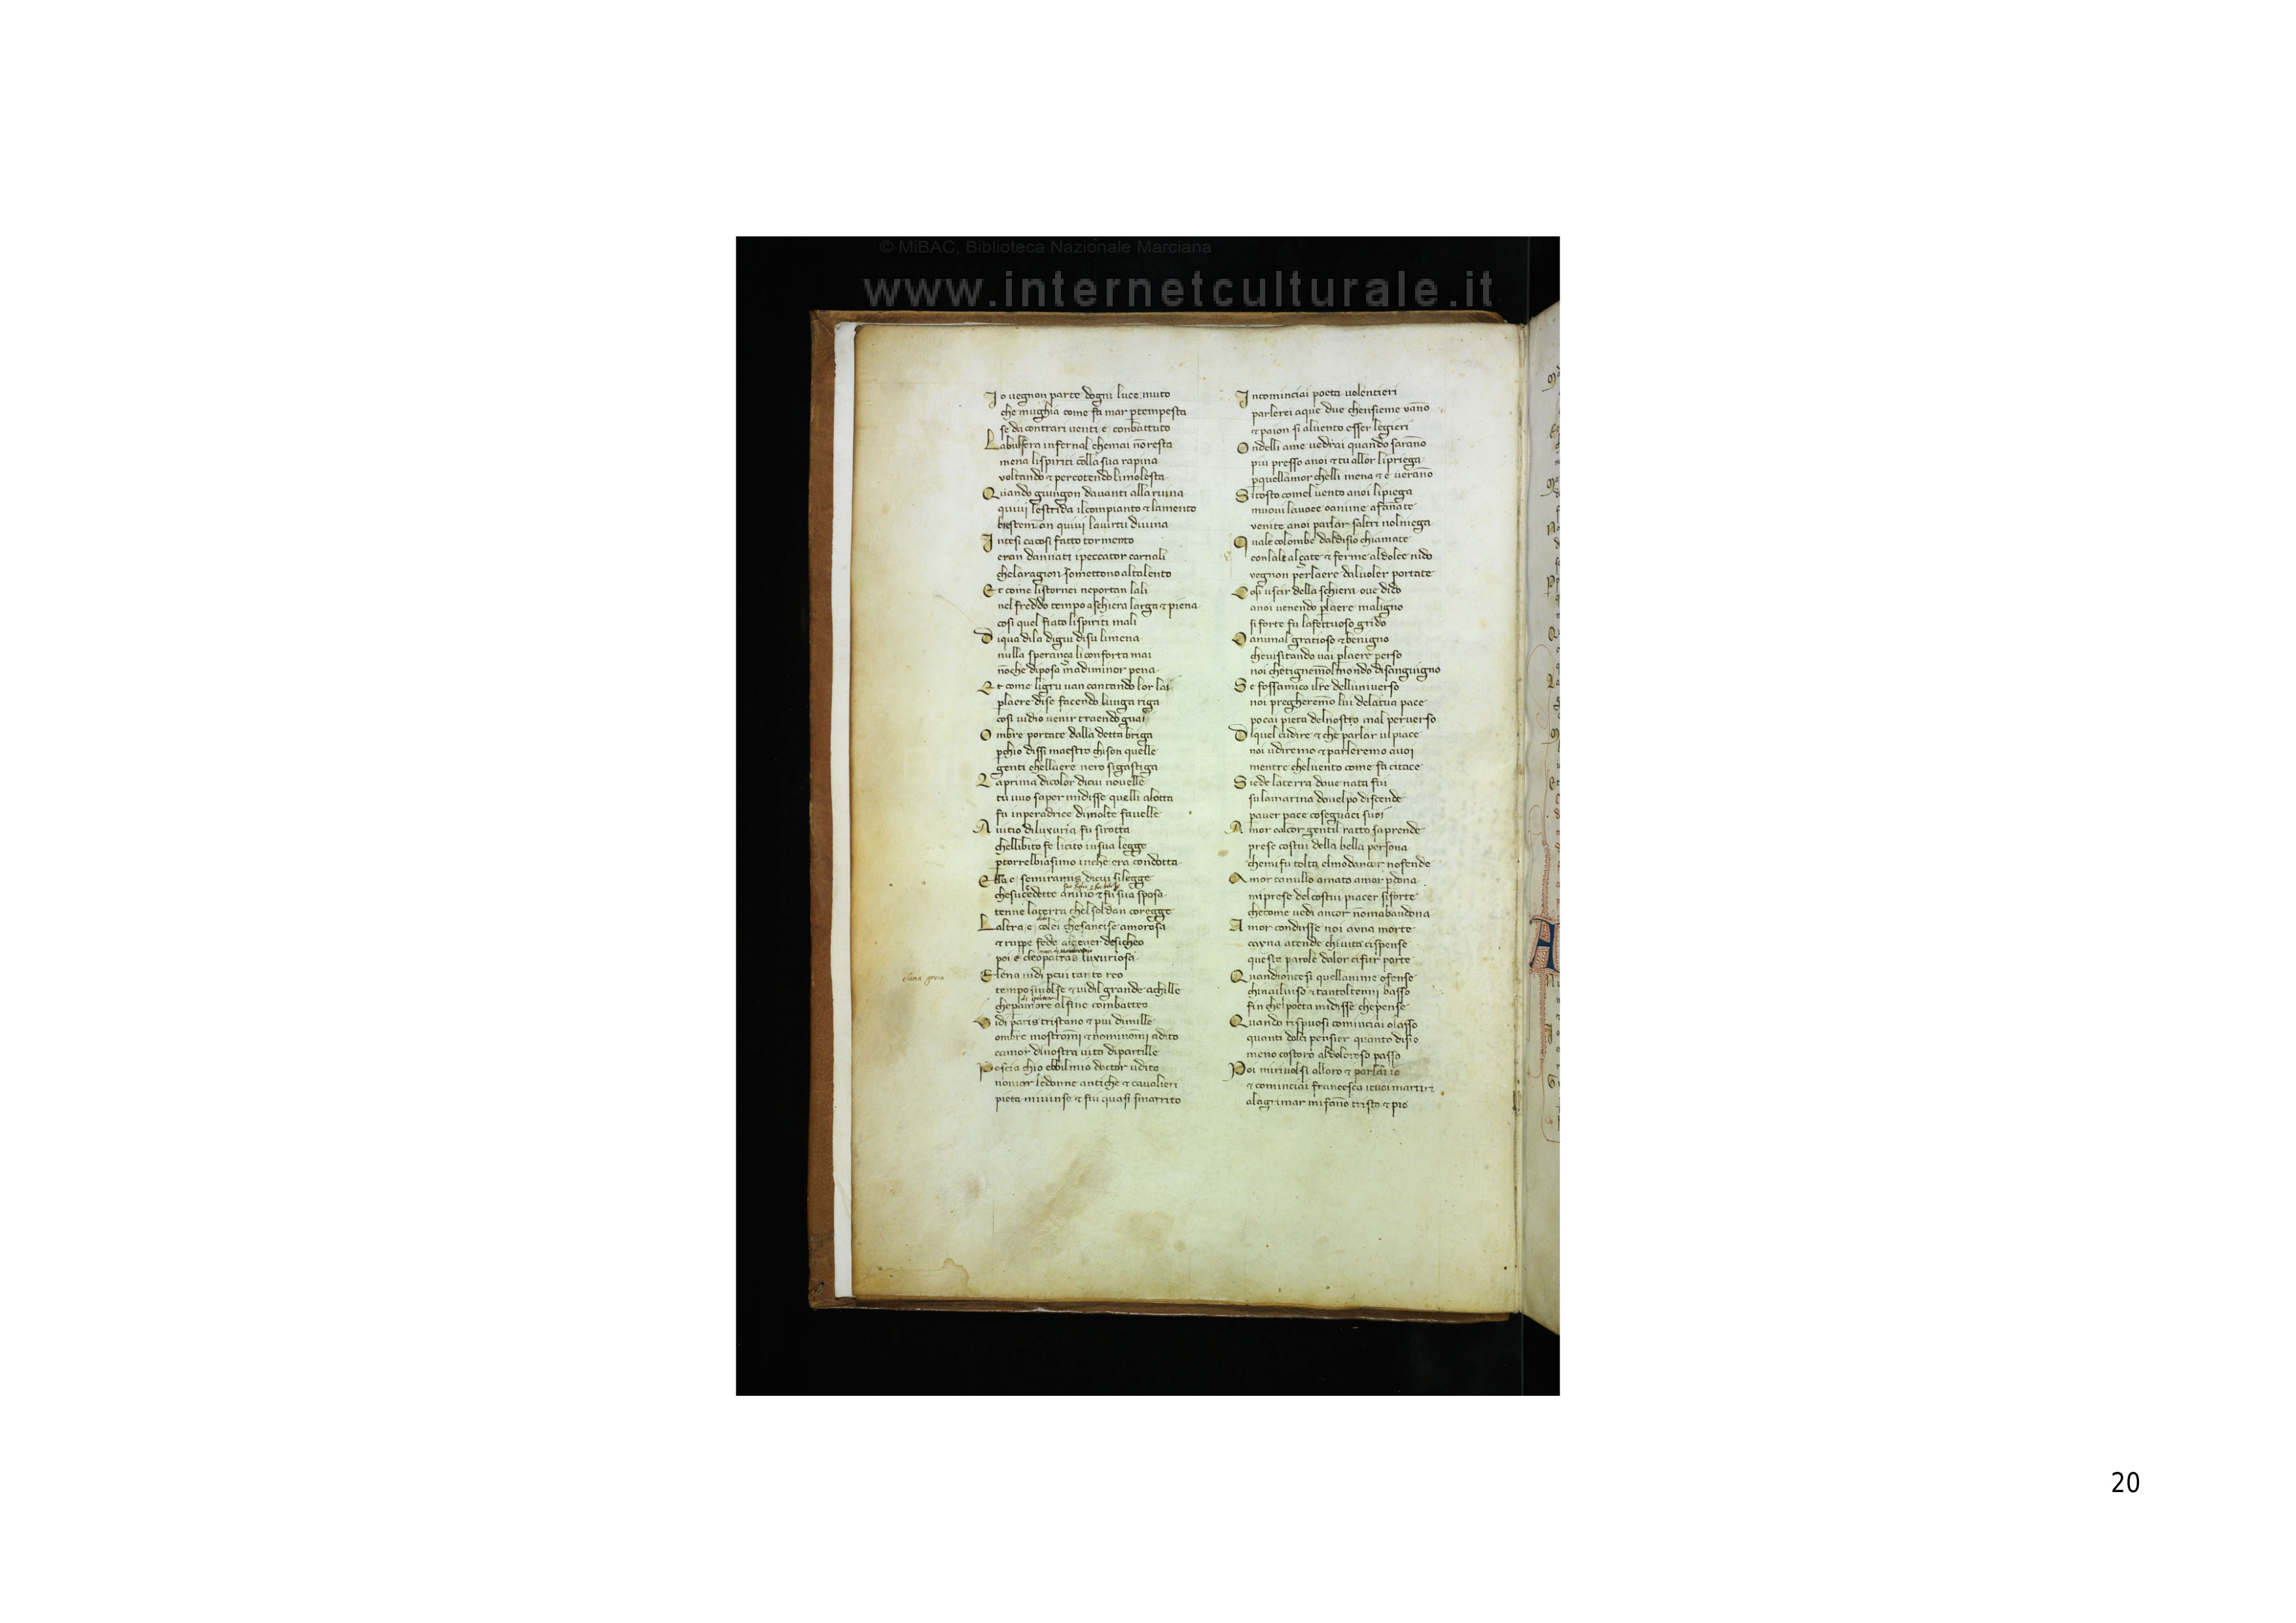 © MiBAC. Biblioteca Nazionale Marciana
www.internetculturale.it
Io uegnon parte dogni luce muto
che mughia come fa mar p̱tempesta
se da contrari uenti e conbattuto
Labufera infernal chemai nōresta
mena lispiriti cōlla sua rapina
voltando & percotendo limolesta
Quando giungon dauanti alla ruina
quiui lestrida ilcompianto & lamento
bestem̄an quiui lauirtu diuina
Intesi cacosi fatto tormento
eran dannati ipeccator carnali
chelaragion somettono altalento
Et come listornei neportan lali
nel freddo tempo aschiera larga & piena
cosi quel fiato lispiriti mali
Diqua dila digiu disu limena
nulla sperança li conforta mai
nōche diposa madiminor pena
Et come ligru uan cantando lor lai
p̱laere dise facendo lunga riga
cosi uidio uenir traendo guai
Ombre portate dalla detta briga
p̱chio dissi maestro chison quelle
genti chellaere nero sigastiga
Laprima dicolor dicui nouelle
tu uuo saper midisse quelli alotta
fu inperadrice dimolte fauelle
Auitio diluxuria fu sirotta
chellibito fe licito insua legge
p̱torrelbiasimo inche era condotta
Ella e semiramis dicui silegge
chesucedette anino & fu sua sposa
tenne laterra chel soldan coregge
Laltra e colei chesancise amorosa
& ruppe fede alcener desicheo
poi e cleopatras luxuriosa
elena greca
Elena uidi p̱cui tanto reo
tempo siuolse & uidil grande achille
chep̱amore alfine combatteo
Vidi paris tristano & piu dimille
ombre mostrom̄i & nominōmi adito
camor dinostra uita dipartille
Poscia chio ebbilmio dottor udito
nomar ledonne antiche & caualieri
pieta miuinse & fui quasi smarrito
Incominciai poeta uolentieri
parlerei aque due chensieme vāno
& paion si aluento esser legieri
Ondelli ame uedrai quando sarāno
piu presso anoi & tu allor lipriega
p̱quellamor chelli mena & e uerāno
Sitosto comel uento anoi lipiega
muoui lauoce oanime afānate
venite anoi parlar saltri nolniega
Quale colombe daldisio chiamate
conlale alçate & ferme aldolce nido
vegnon perlaere daluoler portate
Cosi uscir della schiera oue dido
anoi uenendo p̱laere maligno
si forte fu lafettuoso grido
O animal gratioso & benigno
cheuisitando uai p̱laere perso
noi chetignem̄olmondo disanguigno
Se fossamico ilre delluniuerso
noi pregherem̄o lui delatua pace
pocai pieta delnostro mal peruerso
Diquel cudire & che parlar uipiace
noi udiremo & parleremo auoi
mentre cheluento come fa citace
Siede laterra doue nata fui
sulamarina douelpo discende
p̱auer pace coseguaci suoi
Amor calcor gentil ratto saprende
prese costui della bella persona
chemi fu tolta elmodancor nofende
Amor canullo amato amor p̱dona
miprese delcostui piacer siforte
checome uedi ancor nōmabandona
Amor condusse noi auna morte
cayna atende chiuita cispense
queste parole dalor cifur porte
Quandiontesi quellanime ofense
chinailuiso & tantoltenni basso
fin chelpoeta midisse chepense
Quando rispuosi cominciai olasso
quanti dolci pensier quanto disio
meno costoro aldoloroso passo
Poi miriuolsi alloro & parlai io
& cominciai francesca ituoi martiri
alagrimar mi fāno tristo & pio
20